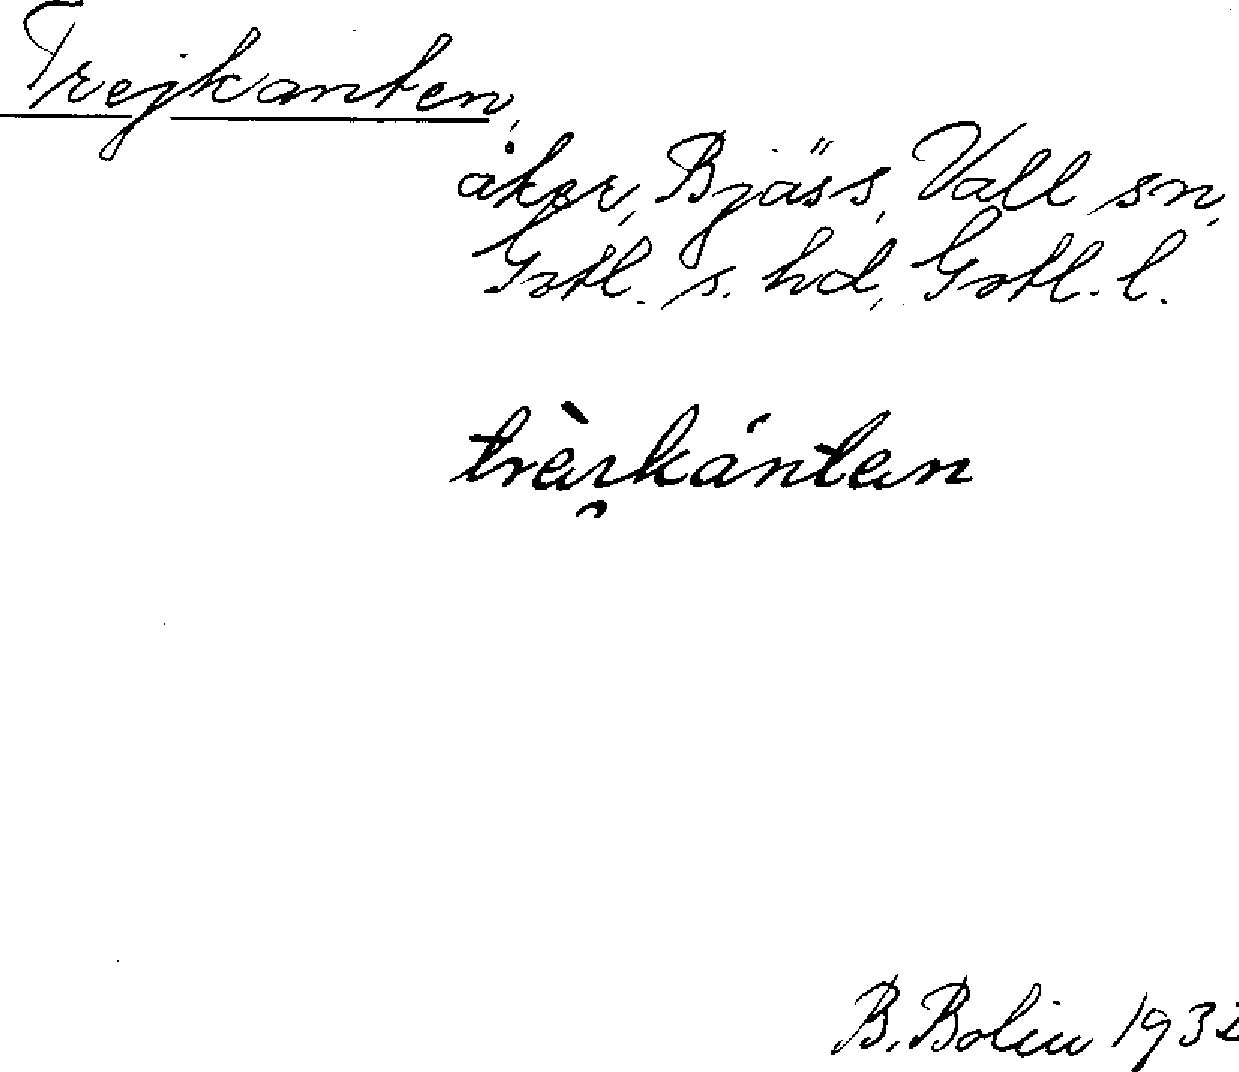 Trejkanten,
åker, Bjäss, Vall sn,
Gotl. s. hd, Gotl. l.
träi̯kántan
B. Bolin 1932